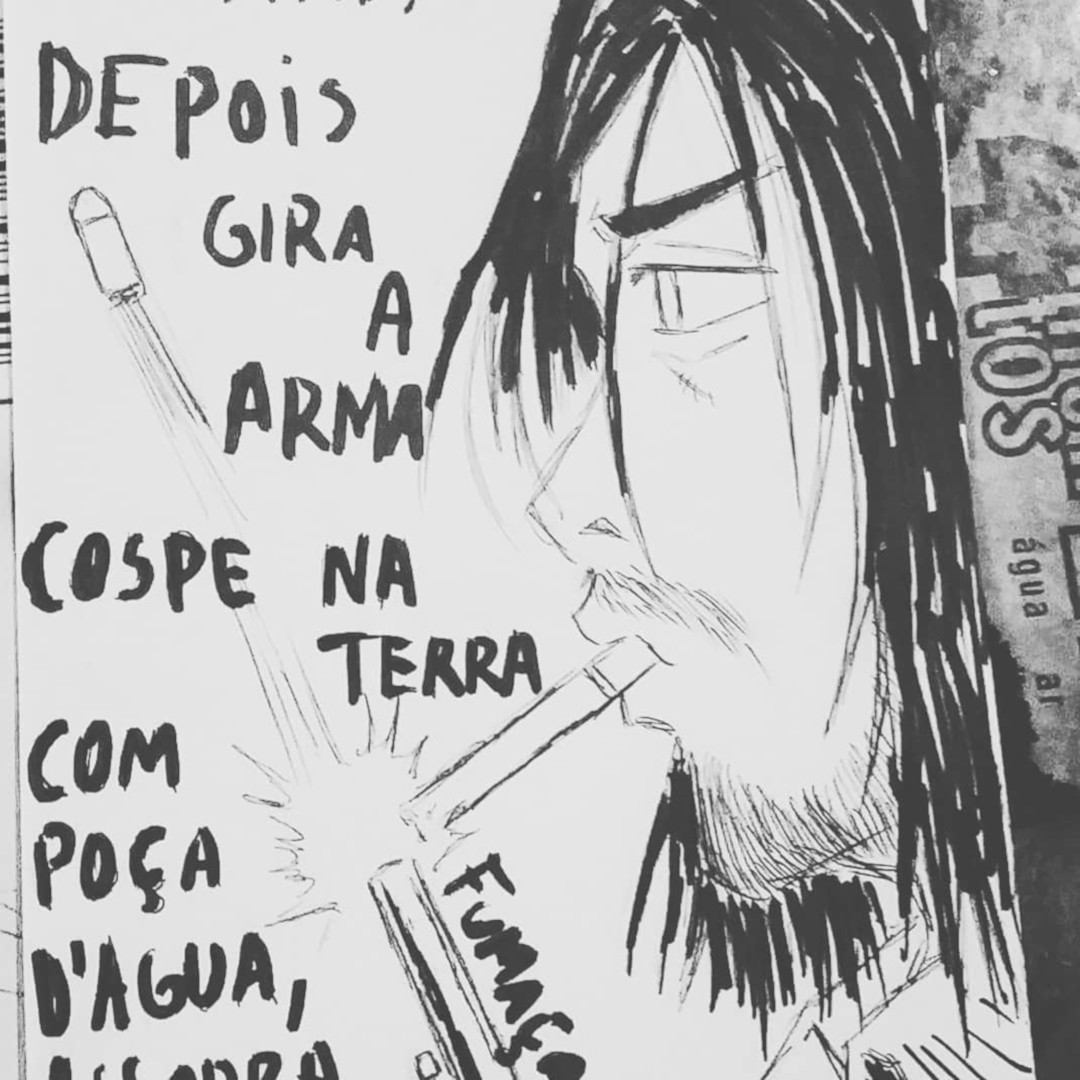 DEPOIS
GIRA
A
ARMA
COSPE NA
TERRA
COM
POÇA
D'AGUA,
FUMAÇA
TOS
água ar